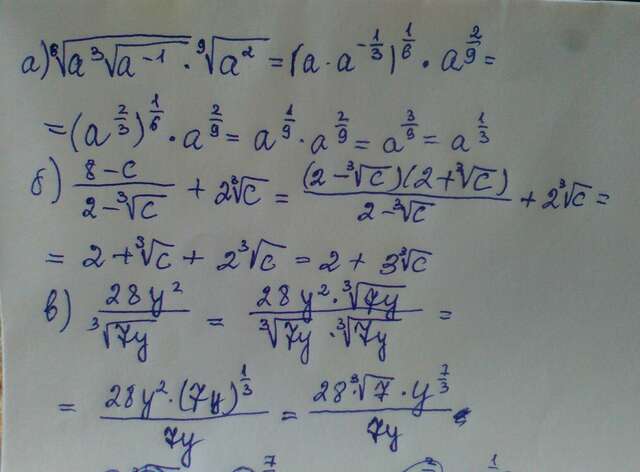 а) ⁶√(a ³√(a⁻¹)) · ⁹√(a²) = (a · a^(-1/3))^(1/6) · a^(2/9) =
= (a^(2/3))^(1/6) · a^(2/9) = a^(1/9) · a^(2/9) = a^(3/9) = a^(1/3)
б) (8-c)/(2-³√c) + 2³√c = ((2-³√c)(2+³√c))/(2-³√c) + 2³√c =
= 2+³√c + 2³√c = 2 + 3³√c
в) 28y²/³√(7y) = (28y² · ³√(7y))/(³√(7y) · ³√(7y)) =
= (28y² · (7y)^(1/3))/(7y) = (28³√7 · y^(7/3))/(7y)